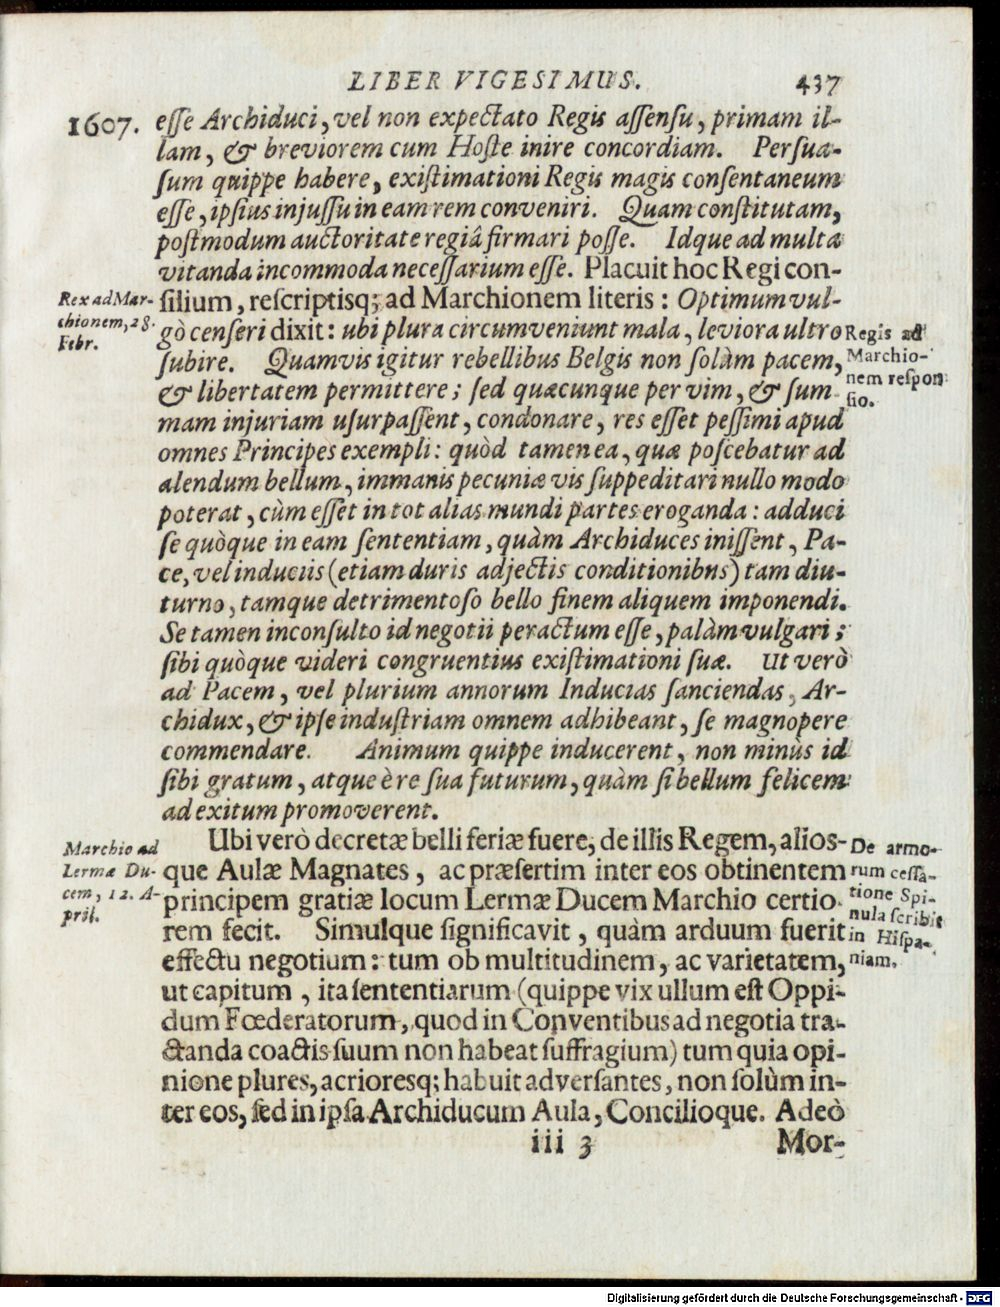 LIBER VIGESIMUS. 437
1607. eſſe Archiduci, vel non expectato Regis aſſenſu, primam il-
lam, & breviorem cum Hoſte inire concordiam. Perſua-
ſum quippe habere, exiſtimationi Regis magis conſentaneum
eſſe, ipſius injuſſu in eam rem conveniri. Quam conſtitutam,
poſtmodum auctoritate regiâ firmari poſſe. Idque ad multa
vitanda incommoda neceſſarium eſſe. Placuit hoc Regi con-
Rex ad Mar-
chionem, 28.
Febr.
ſilium, reſcriptisq; ad Marchionem literis: Optimum vul-
gò cenſeri dixit: ubi plura circumveniunt mala, leviora ultro
Regis ad
Marchio-
nem reſpon
ſio.
ſubire. Quamvis igitur rebellibus Belgis non ſolùm pacem,
& libertatem permittere; ſed quæcunque per vim, & ſum-
mam injuriam uſurpaſſent, condonare, res eſſet peſſimi apud
omnes Principes exempli: quòd tamen ea, quæ poſcebatur ad
alendum bellum, immanis pecuniæ vis ſuppeditari nullo modo
poterat, cùm eſſet in tot alias mundi partes eroganda: adduci
ſe quòque in eam ſententiam, quàm Archiduces iniſſent, Pa-
ce, vel induciis (etiam duris adjectis conditionibus) tam diu-
turno, tamque detrimentoſo bello finem aliquem imponendi.
Se tamen inconſulto id negotii peractum eſſe, palàm vulgari;
ſibi quòque videri congruentius exiſtimationi ſuæ. Ut verò
ad Pacem, vel plurium annorum Inducias ſanciendas, Ar-
chidux, & ipſe induſtriam omnem adhibeant, ſe magnopere
commendare. Animum quippe inducerent, non minùs id
ſibi gratum, atque è re ſua futurum, quàm ſi bellum felicem
ad exitum promoverent.
Marchio ad
Lermæ Du-
cem, 12. A-
pril.
Ubi verò decretæ belli feriæ fuere, de illis Regem, alios-
que Aulæ Magnates, ac præſertim inter eos obtinentem
principem gratiæ locum Lermæ Ducem Marchio certio-
De armo-
rum ceſſa-
tione Spi-
nula ſcribit
in Hiſpa-
niam.
rem fecit. Simulque ſignificavit, quàm arduum fuerit
effectu negotium: tum ob multitudinem, ac varietatem,
ut capitum, ita ſententiarum (quippe vix ullum eſt Oppi-
dum Fœderatorum, quod in Conventibus ad negotia tra-
ctanda coactis ſuum non habeat ſuffragium) tum quia opi-
nione plures, acrioresq; habuit adverſantes, non ſolùm in-
ter eos, ſed in ipſa Archiducum Aula, Concilioque. Adeò
iii 3 Mor-
Digitalisierung gefördert durch die Deutsche Forschungsgemeinschaft - DFG